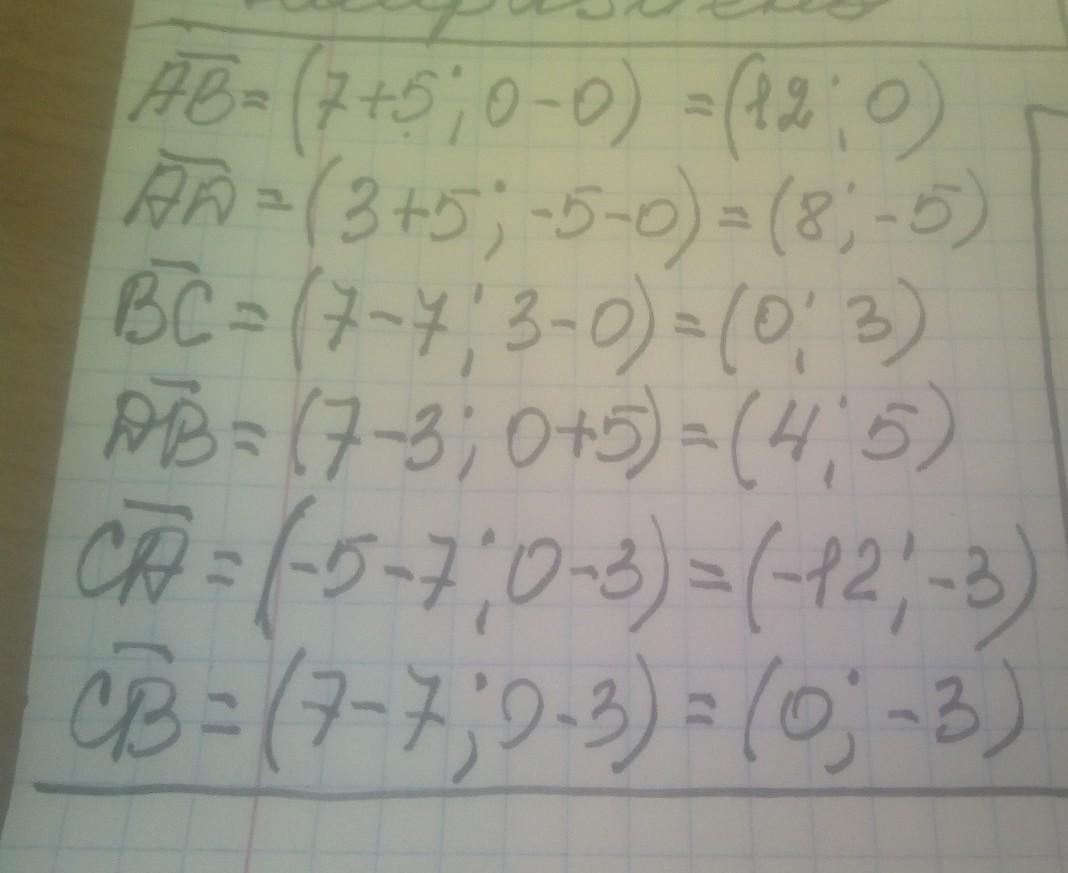 AB = (7+5; 0-0) = (12; 0)
AD = (3+5; -5-0) = (8; -5)
BC = (7-7; 3-0) = (0; 3)
DB = (7-3; 0+5) = (4; 5)
CA = (-5-7; 0-3) = (-12; -3)
CB = (7-7; 0-3) = (0; -3)